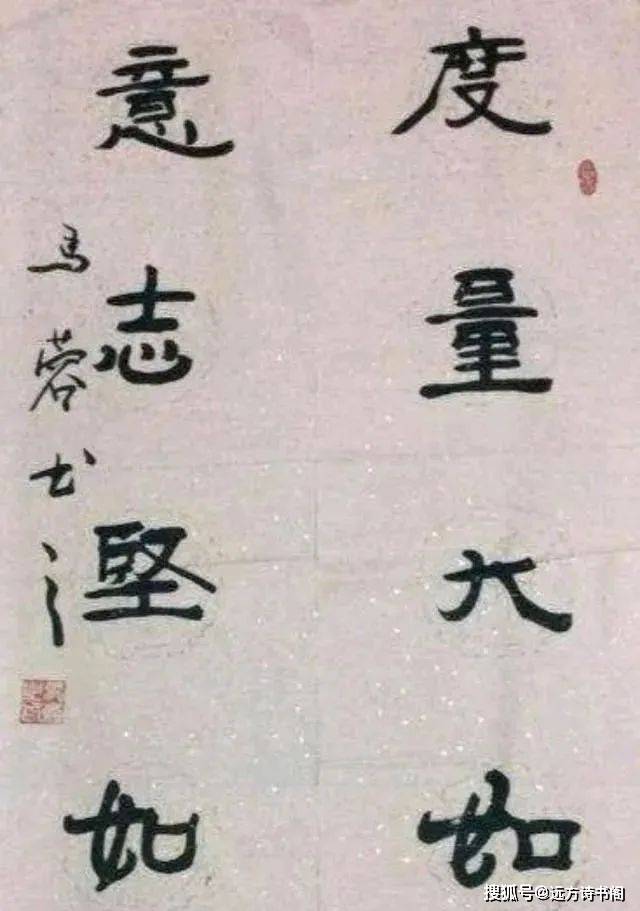 度量大如
意志堅如
馬蓉书之
搜狐号@远方诗书阁